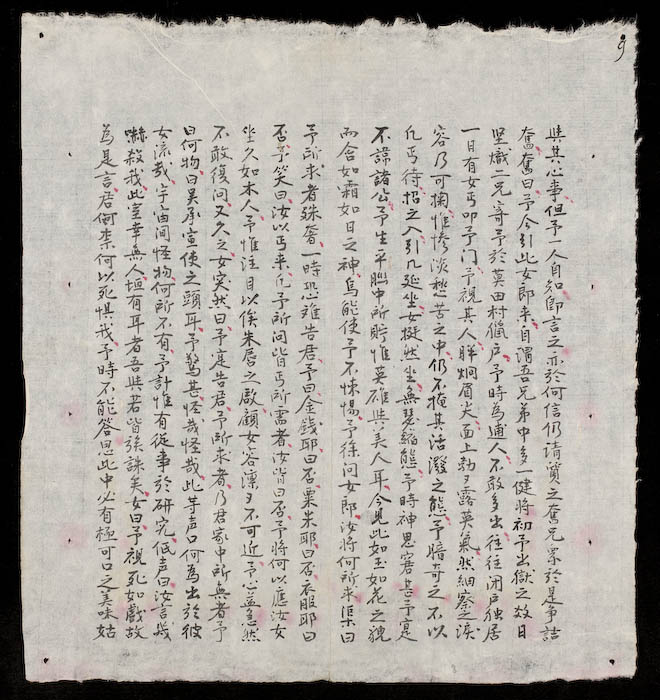 9
與其心事但予一人自知即言之亦於何信仍請質之奮兄累於是爭詰
奮奮曰予今引此女郎來自謂吾兄弟中多一健將初予出獄之效日
堅熾二兄寄予於莫田村獵戶予時為逋人不敢多出往往閉戶独居
一日有女丐叩予门予視其人眸炯眉尖面上勃勃露英氣然細察之淚
容乃可掬惟慘淡愁苦之中仍不掩其活潑之態予暗奇之不以
凡丐待招之入引几延坐女挺然坐無瑟縮態予時神思窘甚予寔
不諱諸公予生平腦中所貯惟英雄與美人耳今見此如玉如花之貌
而含如霜如日之神烏能使予不悚惕予徐问女郎汝將何所求渠曰
予所求者殊奢一時恐难告君予曰金錢耶曰否粟米耶曰否衣服耶曰
否予笑曰汝以丐来凡予所问皆丐所需者汝皆曰否予將何以應汝女
坐久如木人予惟注目以俟朱唇之啟顧女容凜凜不可近予心益急然
不敢復问又久之女突然曰予寔告君予所求者乃君家中所無者予
曰何物曰吴承宣使之頭耳予驚甚怪哉怪哉此等声口何為出於彼
女流哉宇宙间怪物何所不有予計惟有從事於研究低声曰汝言幾
嚇殺我此室幸無人垣有耳者吾與若皆族誅矣女曰予視死如戲故
為是言君何柰何以死惧我予時不能答思此中必有極可口之美味姑